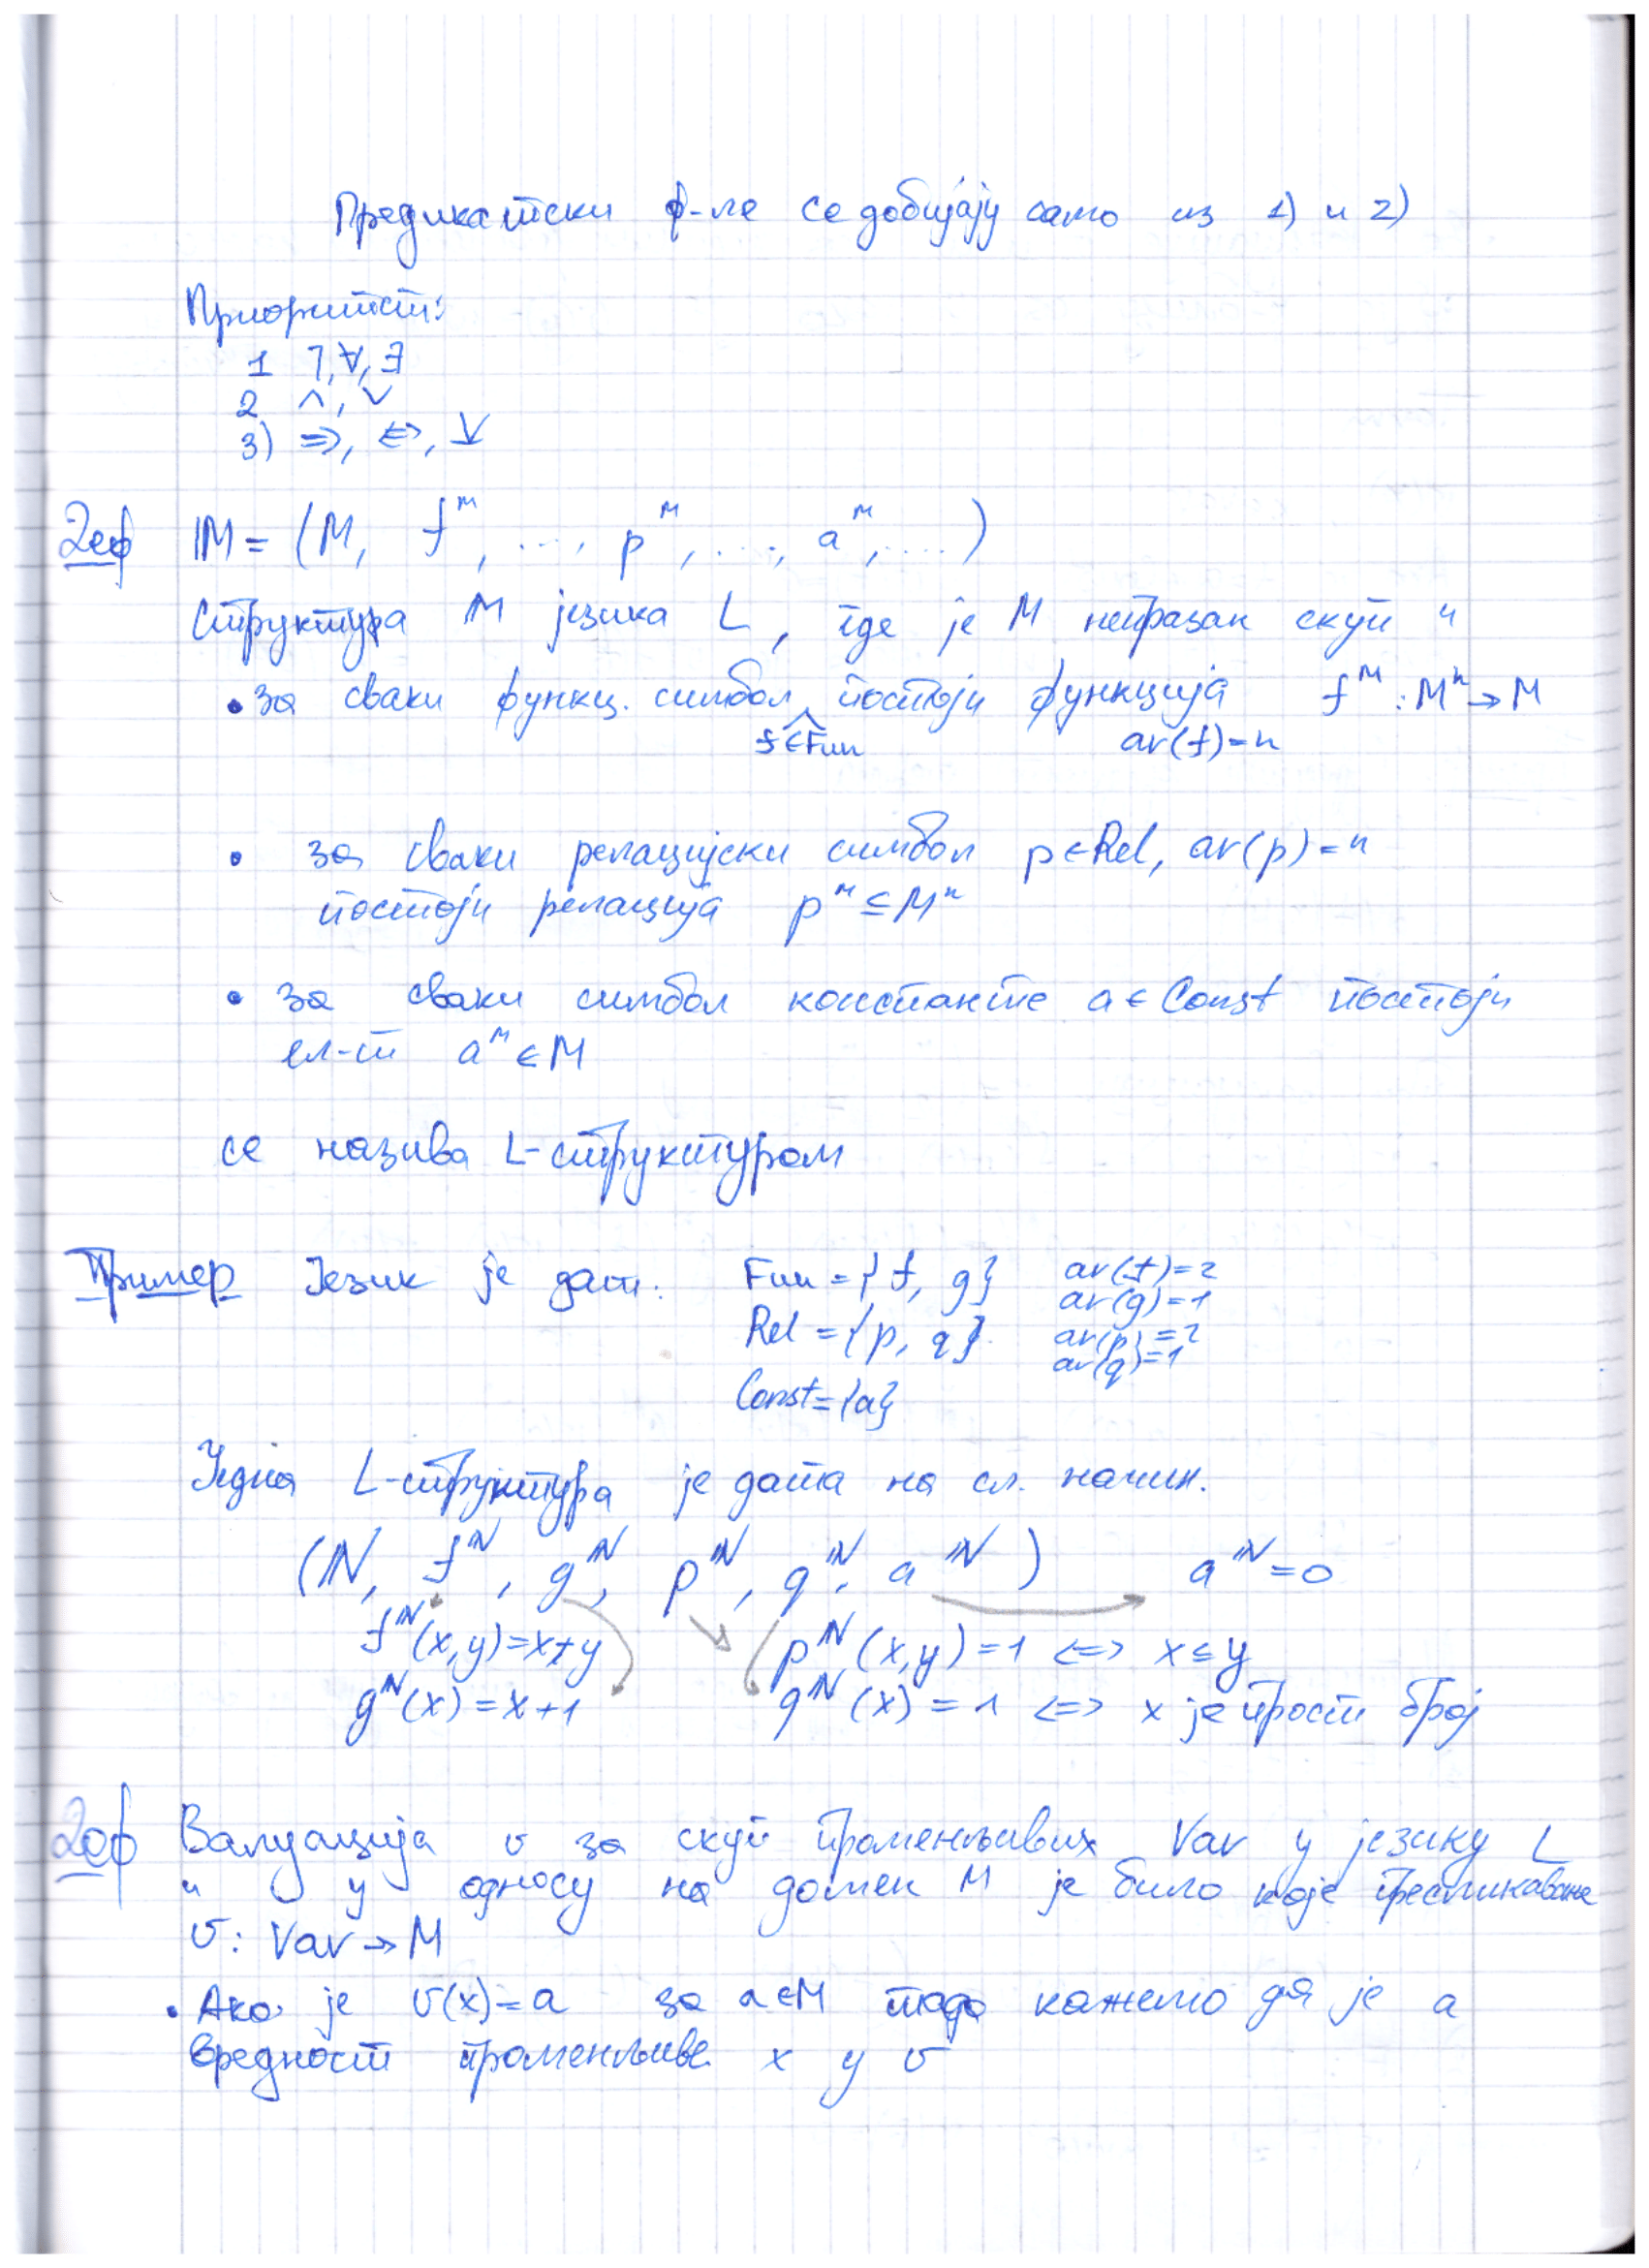 Предикатски ф-ле се добијају само из 1) и 2)
Приоритет:
1 ⅂,∀,∃
2 ∧, ∨
3) ⇒, ⇔, ⊻
Деф 𝕄 = (M, f^M, ..., p^M, ..., a^M, ....)
Структура M језика L, где је M непразан скуп и
• за сваки функц. симбол постоји функција f^M : M^n → M
f∈Fun ar(f)=n
• за сваки релацијски симбол p∈Rel, ar(p)=n
постоји релација p^M ⊆ M^n
• за сваки симбол константе a∈Const постоји
ел-т a^M ∈ M
се назива L-структуром
Пример Језик је дат: Fun = {f, g} ar(f)=2
ar(g)=1
Rel = {p, q} ar(p)=2
ar(q)=1
Const={a}
Једна L-структура је дата на сл. начин.
(ℕ, f^ℕ, g^ℕ, p^ℕ, q^ℕ, a^ℕ) a^ℕ=0
f^ℕ(x,y)=x+y p^ℕ(x,y)=1 ⇔ x≤y
g^ℕ(x)=x+1 q^ℕ(x)=1 ⇔ x је прост број
Деф Валуација v за скуп променљивих Var у језику L
и у односу на домен M је било које пресликавање
v: Var → M
• Ако је v(x)=a за a∈M тада кажемо да је a
вредност променљиве x у v